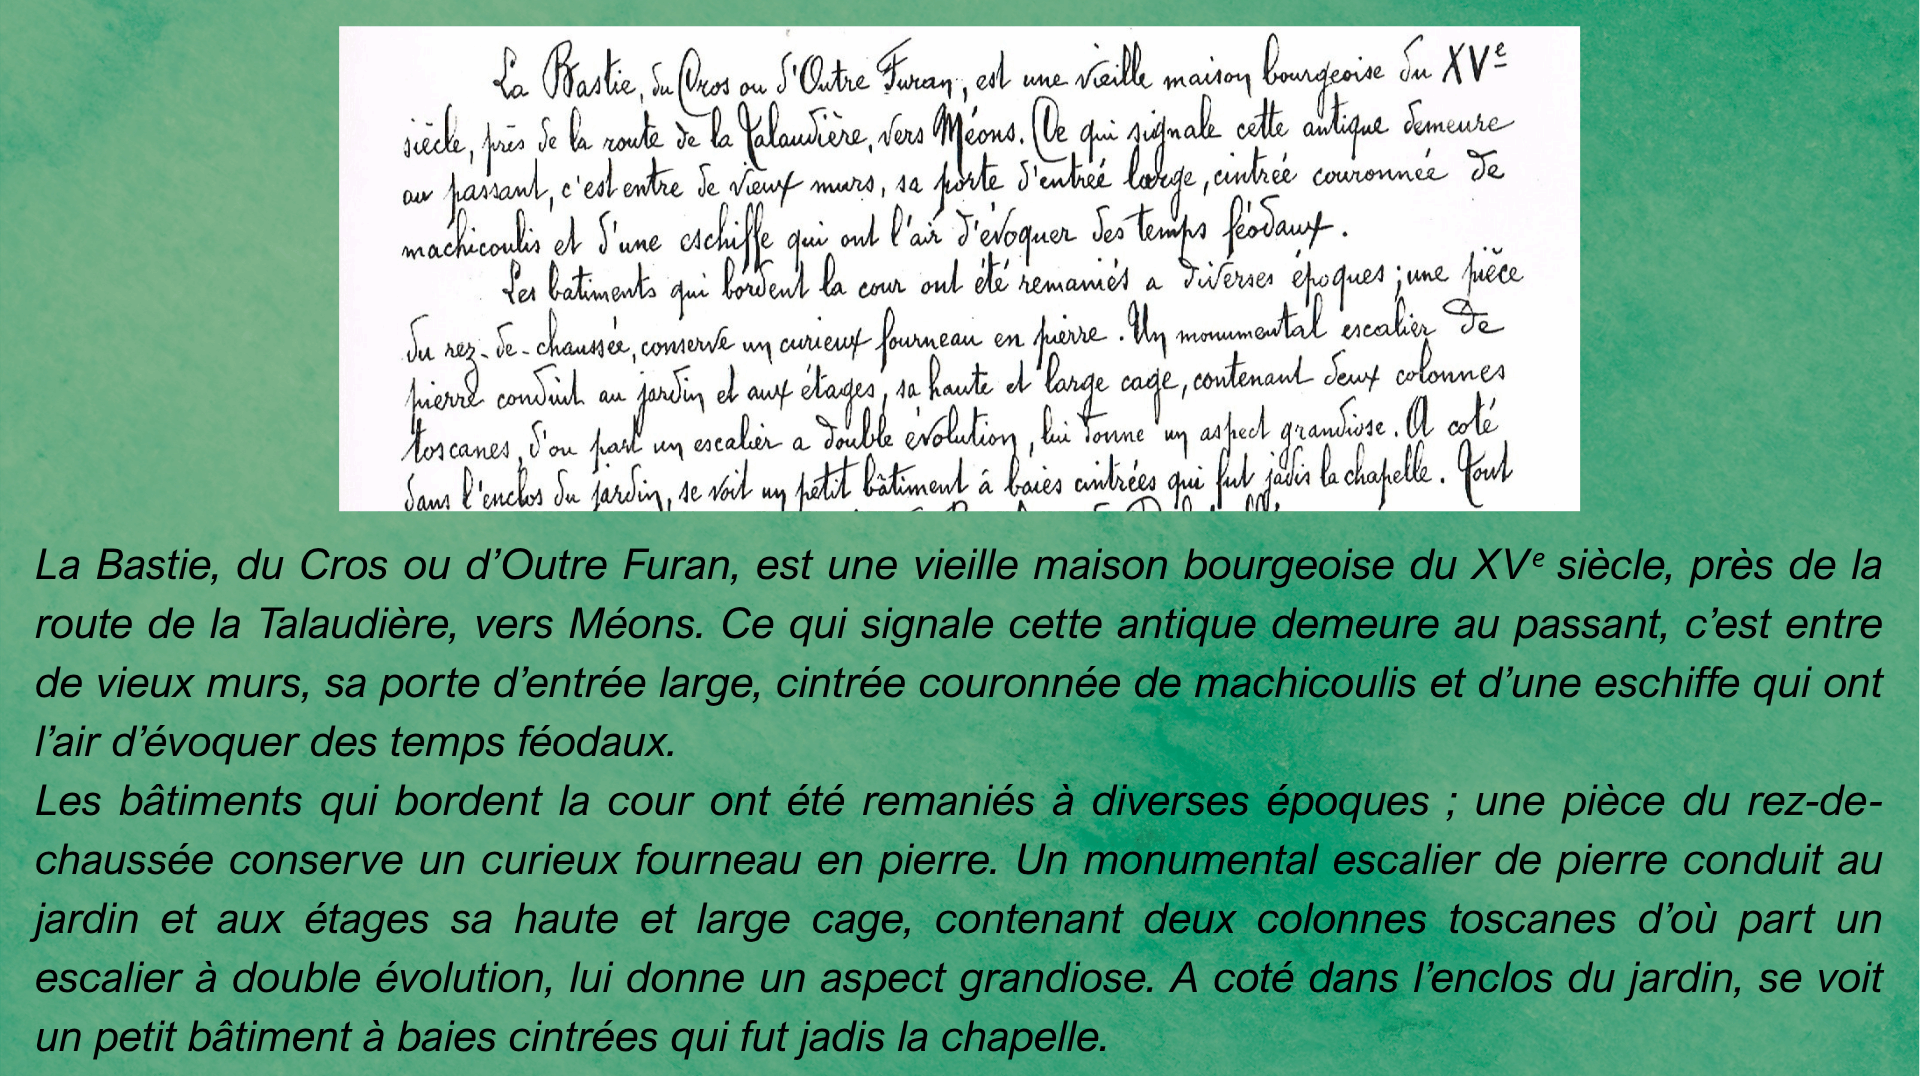 La Bastie, du Cros ou d'Outre Furan, est une vieille maison bourgeoise du XVe
siècle, près de la route de la Talaudière, vers Méons. Ce qui signale cette antique demeure
au passant, c'est entre de vieux murs, sa porte d'entrée large, cintrée couronnée de
machicoulis et d'une eschiffe qui ont l'air d'évoquer des temps féodaux.
Les batiments qui bordent la cour ont été remaniés a diverses époques ; une pièce
du rez-de-chaussée, conserve un curieux fourneau en pierre. Un monumental escalier de
pierre conduit au jardin et aux étages, sa haute et large cage, contenant deux colonnes
toscanes, d'ou part un escalier a double évolution, lui donne un aspect grandiose. A coté
dans l'enclos du jardin, se voit un petit bâtiment à baies cintrées qui fut jadis la chapelle. Tout
La Bastie, du Cros ou d’Outre Furan, est une vieille maison bourgeoise du XVᵉ siècle, près de la
route de la Talaudière, vers Méons. Ce qui signale cette antique demeure au passant, c’est entre
de vieux murs, sa porte d’entrée large, cintrée couronnée de machicoulis et d’une eschiffe qui ont
l’air d’évoquer des temps féodaux.
Les bâtiments qui bordent la cour ont été remaniés à diverses époques ; une pièce du rez-de-
chaussée conserve un curieux fourneau en pierre. Un monumental escalier de pierre conduit au
jardin et aux étages sa haute et large cage, contenant deux colonnes toscanes d’où part un
escalier à double évolution, lui donne un aspect grandiose. A coté dans l’enclos du jardin, se voit
un petit bâtiment à baies cintrées qui fut jadis la chapelle.